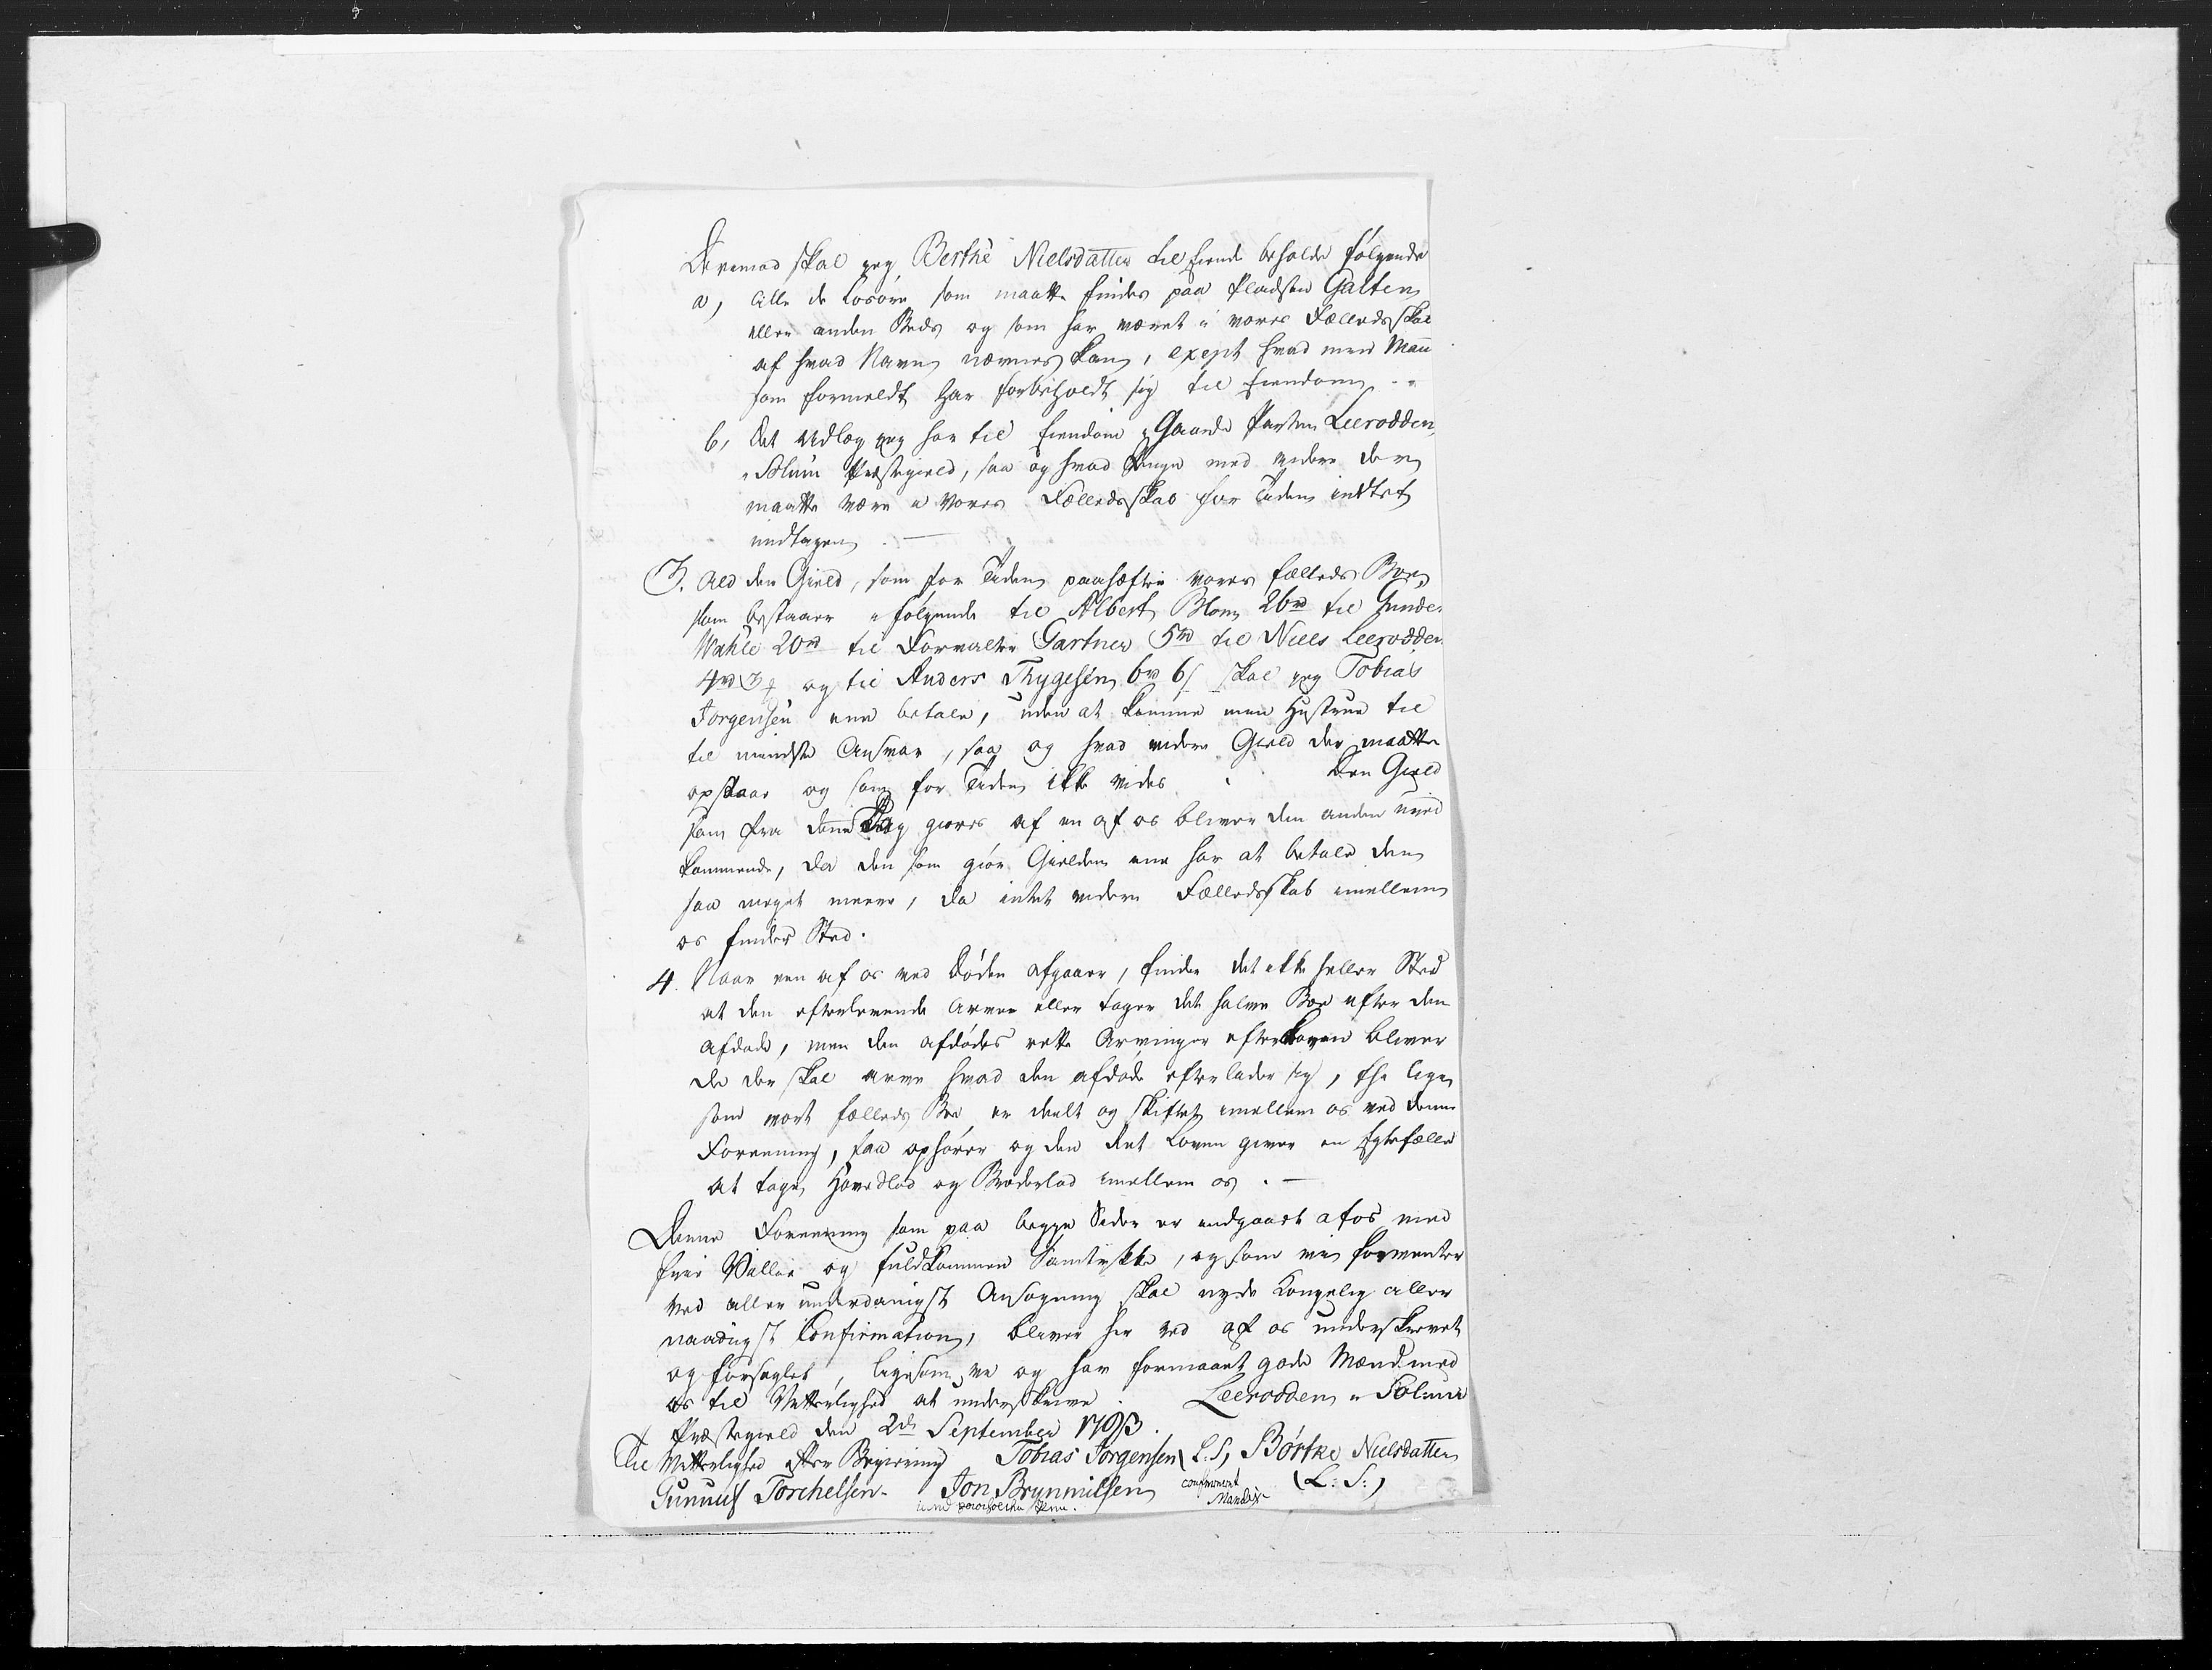 Deremod skal jeg Berthe Nielsdatter til Eiende beholde følgende
a, alle de Løsøre som maatte findes paa Pladsen Galten
eller anden Steds og som har været i vores Fælledsskab
af hvad Navn nævnes kan, exept hvad min Mañ
som formeldt har forbeholdt sig til Eiendom
b, det Udlæg jeg har til Eiendom i Gaarde Parten Leerodden
i Solum Præstegield, saa og hvad Penge med videre der
maatte være i vores Fælledsskab for Tiden intet
undtagen.
3. All den Gield, som for Tiden paahæfter vores fælleds Boe,
som bestaaer i følgende til Albert Blom 26rd til Gunde
Wahle 20rd til Forvalter Gartner 5rd til Niels Leerodden
4rd 3 og til Anders Thygesen 6rd 6s skal jeg Tobias
Jørgensen ene betale, uden at komme min Hustrue til
til mindste Ansvar, saa og hvad videre Gield der maatte
opstaae og som for Tiden ikke vides. Den Gield
som fra denne Dag giøres af en af os bliver den anden uved
kommende, da den som giør Gielden ene har at betale den
saa meget meere, da intet videre Fælledsskab imellem
os finder Sted.
4. Naar een af os ved Døden afgaaer, finder det ikke heller Sted
at den efterlevende arver eller tager det halve Boe efter den
afdøde, men den afdødes rette Arvinger efter Loven bliver
de der skal arve hvad den afdøde efterlader sig, thi lige
som vort fælleds Boe er deelt og skiftet imellem os ved denne
Foreening, saa ophører og den Ret Loven giver en Egtefælle
at tage Hovedlod og Broderlod imellem os.
Denne Foreening som paa begge Sider er indgaaet af os med
frie Villie og fuldkommen Samtykke, og som vi formenter
ved aller underdanigst Ansøgning skal nyde Kongelig aller
naadigst Confirmation, bliver her ved af os underskrevet
og forseglet, ligesom vi og har formaaet gode Mænd med
os til Vitterlighed at underskrive. Leerodden i Solum
Præstegield den 2de September 1793.
Til Vitterlighed efter Begiering Tobias Jørgensen (L. S) Börthe Nielsdatter
Gunnuf Torchelsen Jon Brynnilsen (L: S:)
med paaholden Pen.